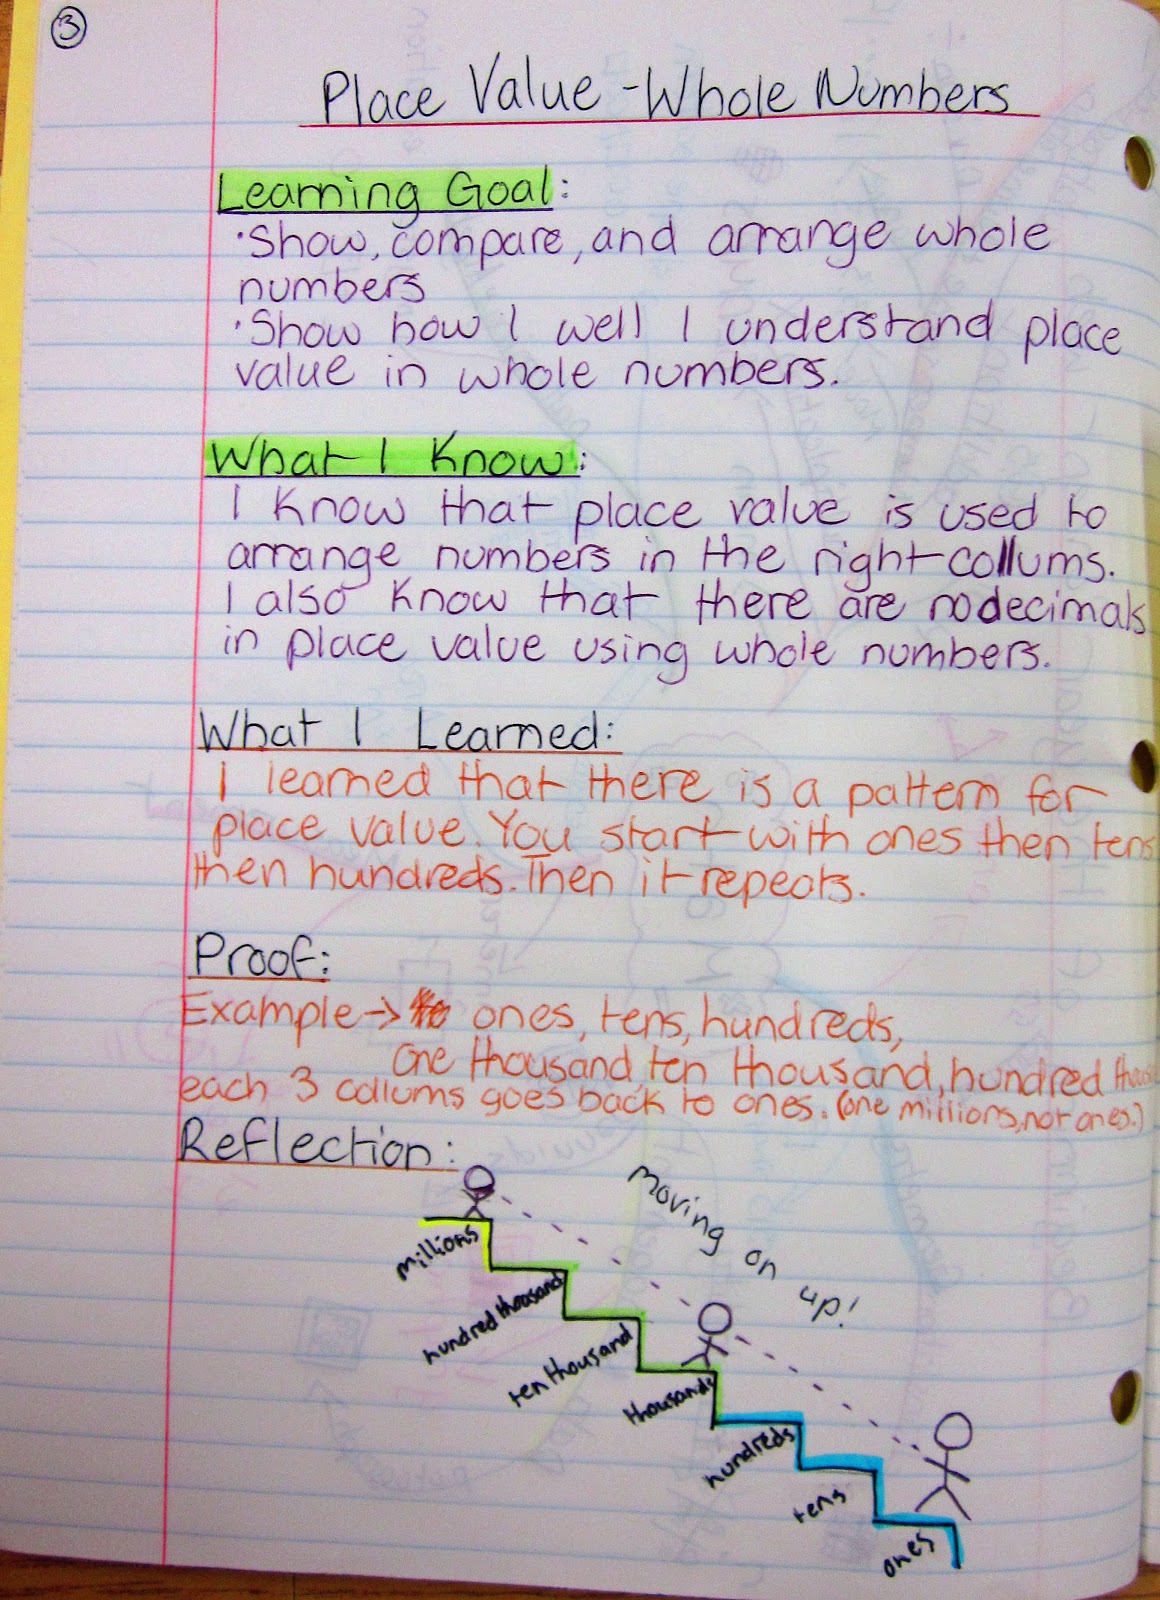 3
Place Value - Whole Numbers
Learning Goal:
·Show, compare, and arrange whole
numbers
·Show how I well I understand place
value in whole numbers.
What I Know:
I know that place value is used to
arrange numbers in the right collums.
I also know that there are no decimals
in place value using whole numbers.
What I Learned:
I learned that there is a pattern for
place value. You start with ones then tens
then hundreds. Then it repeats.
Proof:
Example → ones, tens, hundreds,
one thousand, ten thousand, hundred
each 3 collums goes back to ones. (one millions, not ones.)
Reflection:
moving on up!
millions
hundred thousand
ten thousand
thousands
hundreds
tens
ones